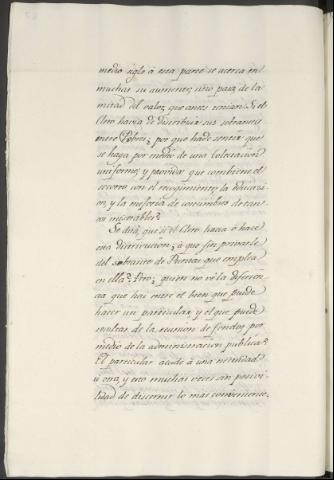 medio siglo á esta parte se acerca en
muchas su aumento, sino pasa, de la
mitad del valor, que antes tenian. Si el
Clero havia de distribuir sus sobrantes
entre Pobres; por que ha de sentir que
se haga por medio de una Colectacion
uniforme, y provida que combine el
socorro con el recogimiento, la educaci
on, y la mejoria de costumbres de tan
tos miserables?
Se dirá, que si el Clero havia ó hace
esa distribucion; á que fin privarle
del sobrante de Rentas que emplea
en ella? Pero; quien no vé la diferen
cia que hai entre el bien que puede
hacer un particular, y el que puede
resultar de la reunion de fondos por
medio de la administracion publica?
El particular acude á una necesidad
ú otra, y esto muchas veces sin posivi
lidad de discernir lo mas conveniente,